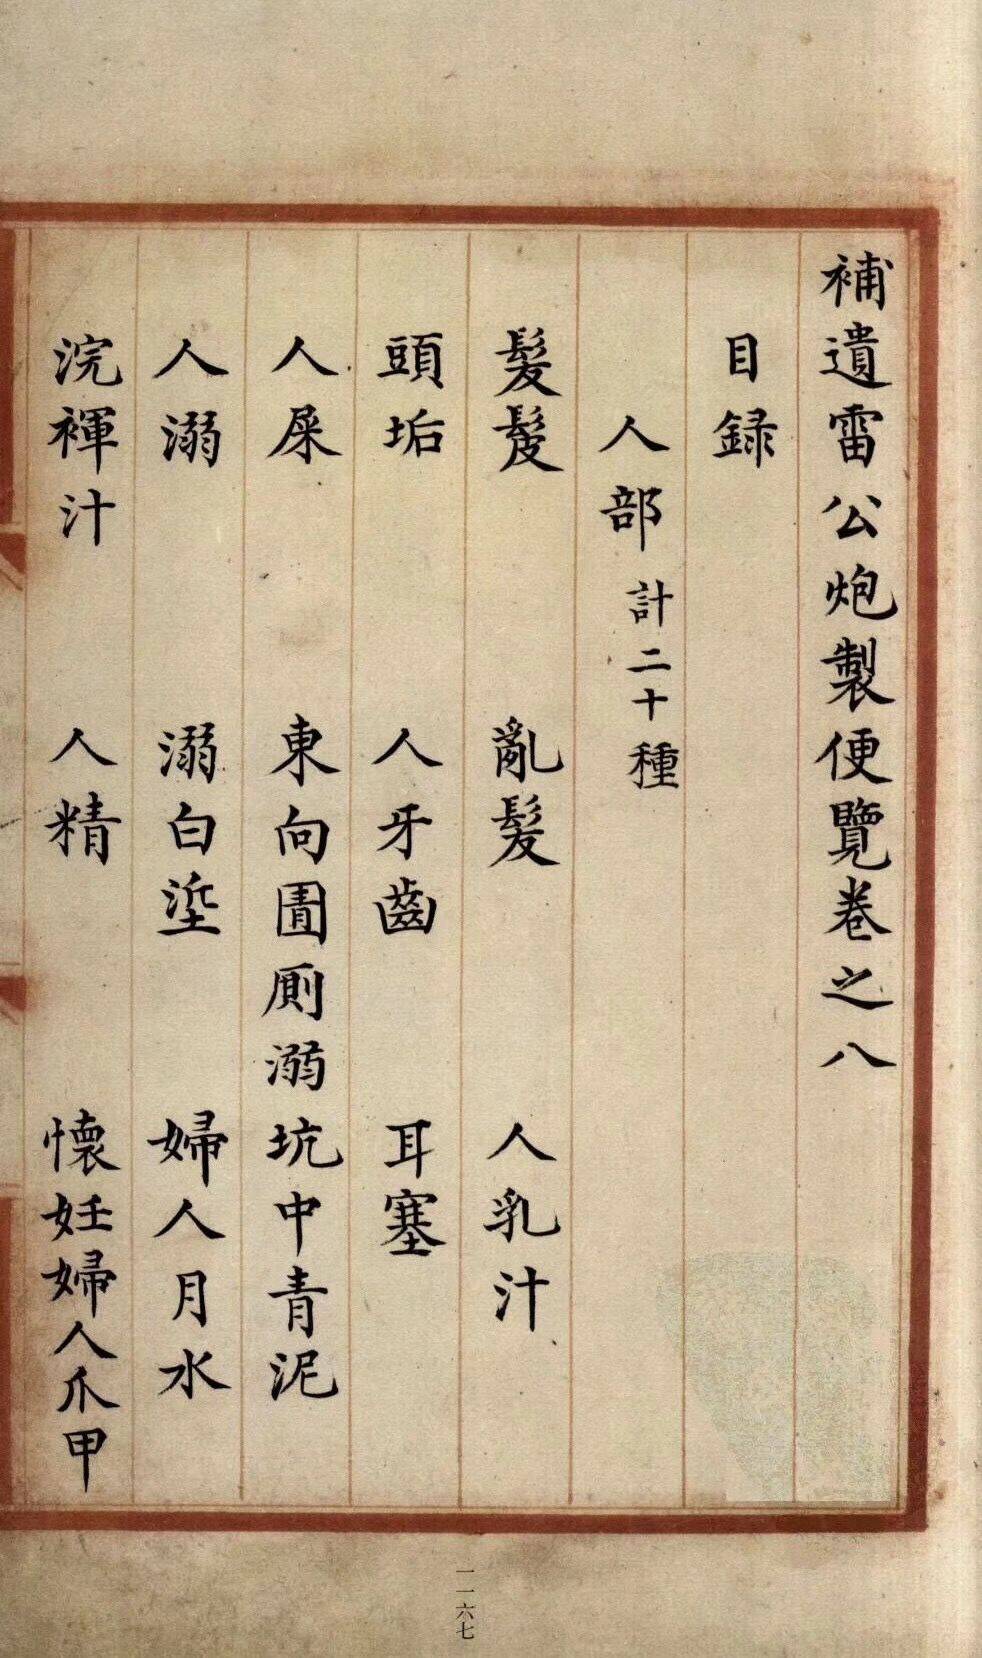 補遺雷公炮製便覽卷之八
目録
人部 計二十種
髮髲 亂髮 人乳汁
頭垢 人牙齒 耳塞
人屎 東向圊厠溺坑中青泥
人溺 溺白垽 婦人月水
浣褌汁 人精 懷妊婦人爪甲
一一六七